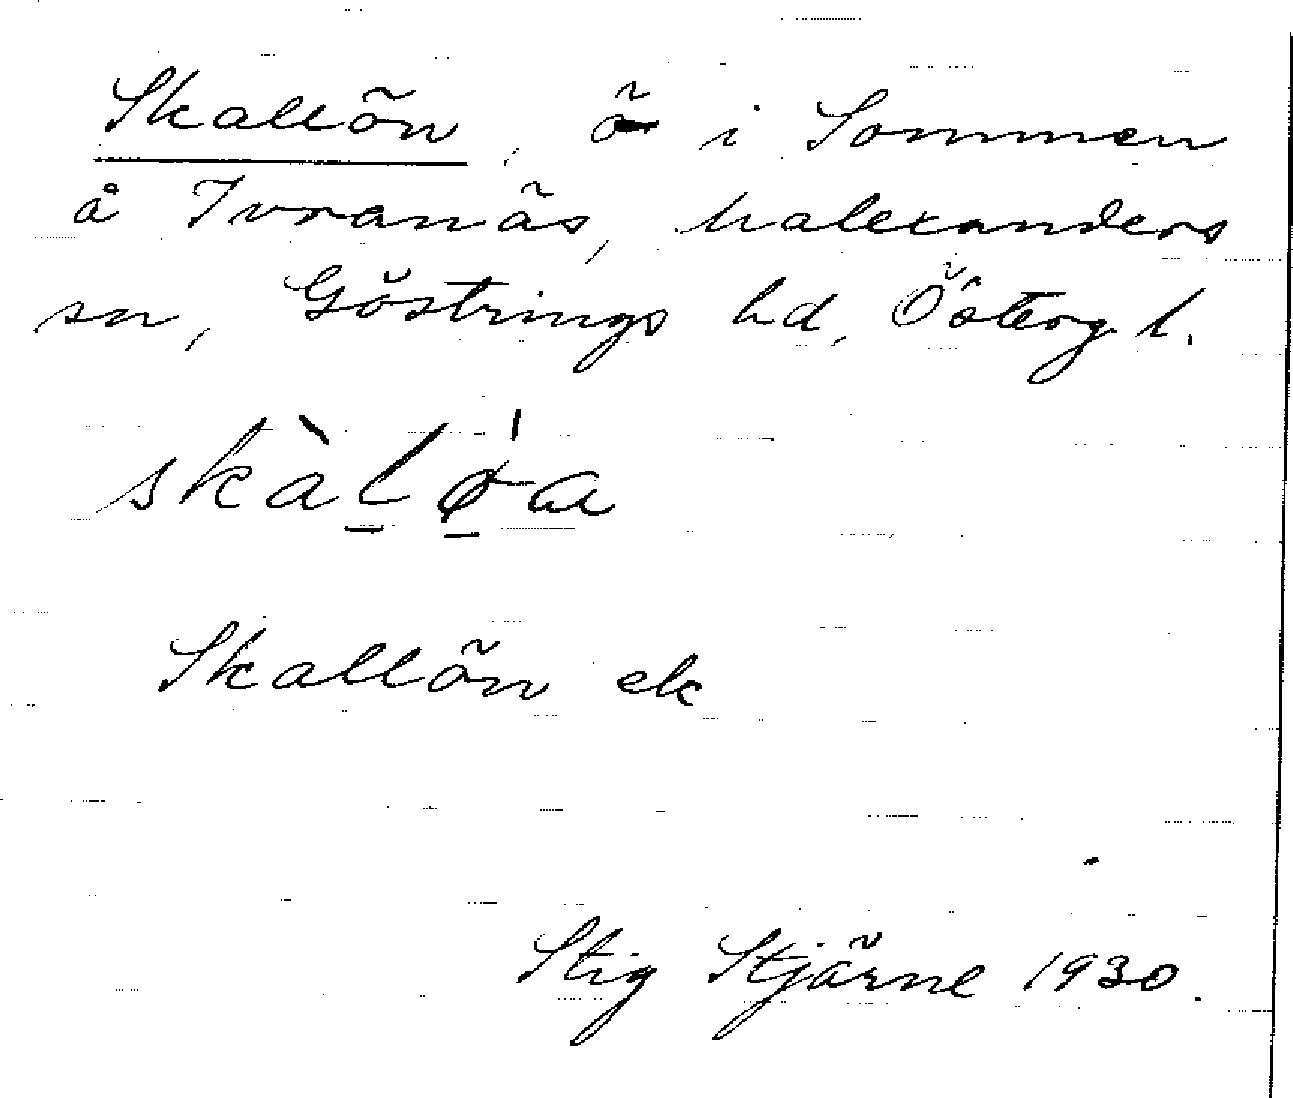 Skallön, ö i Sommen
å Ivranäs, Malexanders
sn, Göstrings hd, Östergl.
skàlø̵a
Skallön ek
Stig Stjärne 1930.